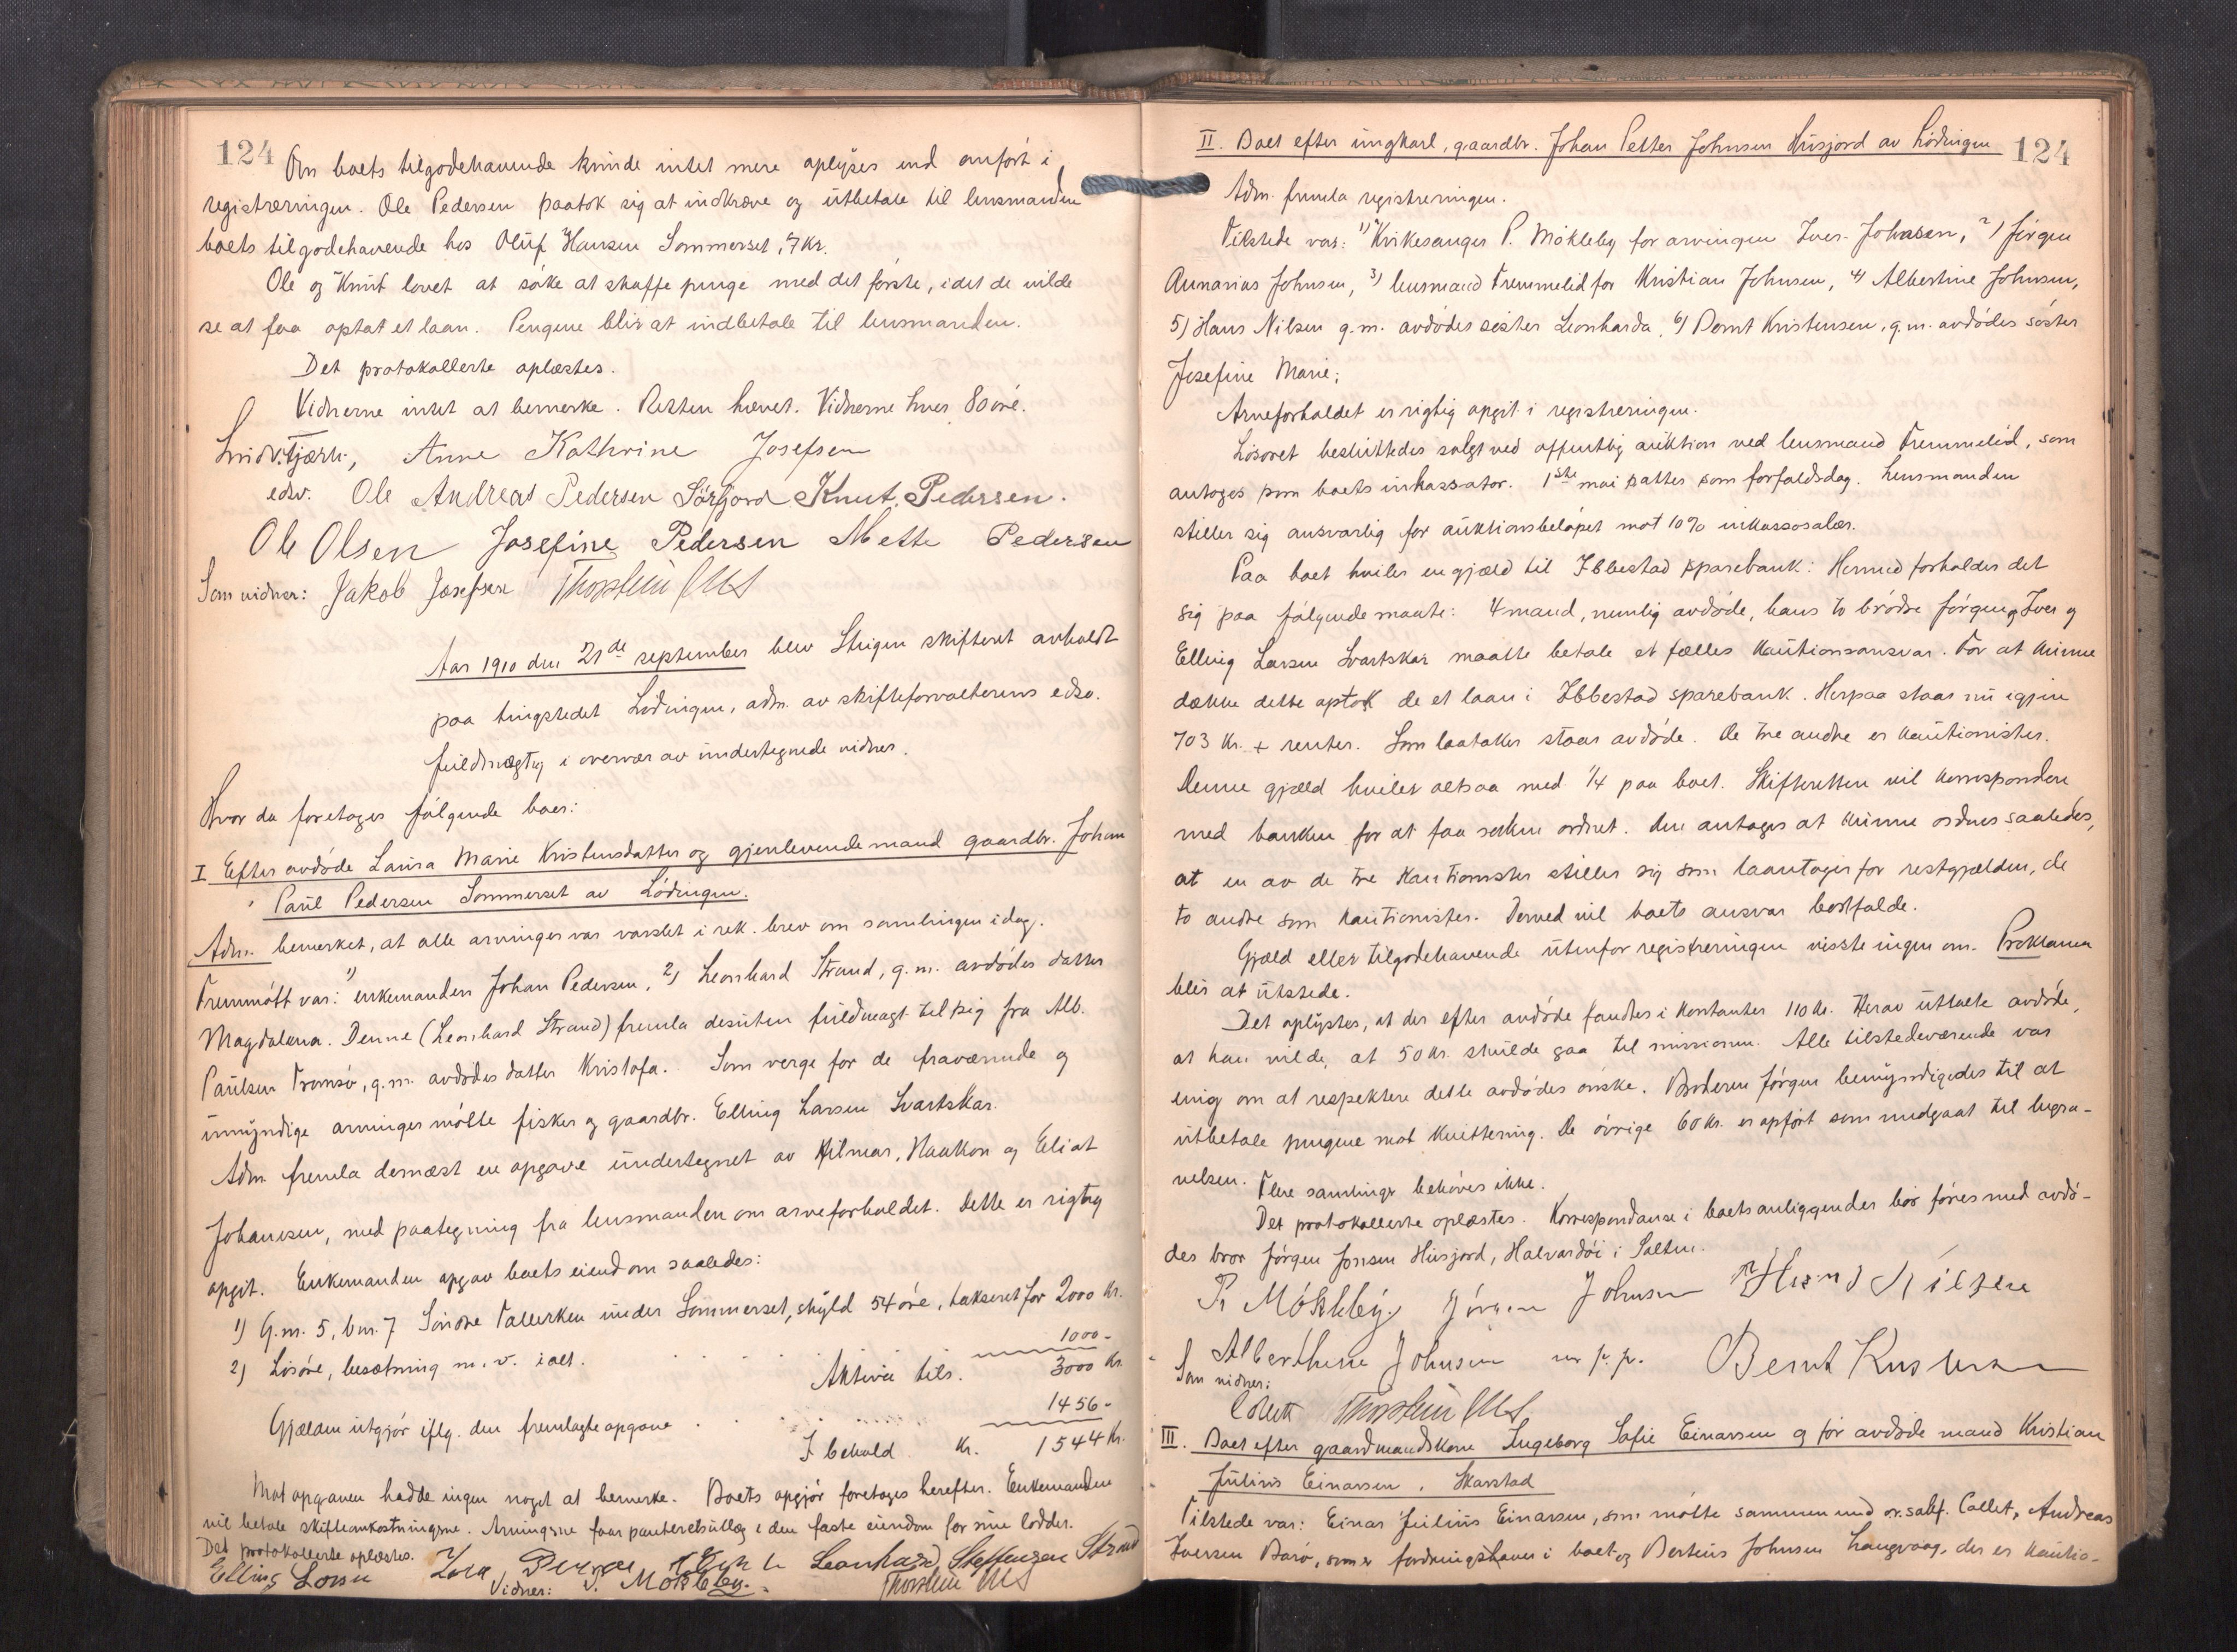 124
Om boets tilgodehavende kunde intet mere oplyses end anført i
registreringen. Ole Pedersen paatok sig at indkræve og utbetale til lensmanden
boets tilgodehavende hos Oluf Hansen Sommerset, 7 Kr.
Ole og Knut lovet at søke at skaffe penge med det første, idet de vilde
se at faa optat et laan. Pengene blir at indbetale til lensmanden.
Det protokollerte oplæstes.
Vidnerne intet at bemerke. Retten hævet. Vidnerne hver 80 øre.
Anne Kathrine Josefsen
edsv. Ole Andreas Pedersen Sörfjord Knut Pedersen.
Ole Olsen Josefine Pedersen Mette Pedersen
Som vidner: Jakob Josefsen Thorstein
Aar 1910 den 21de september blev Stigen skifteret avholdt
paa tingstedet Lødingen, adm. av skifteforvalterens edsv.
fuldmægtig i overvær av undertegnede vidner.
Hvor da foretoges følgende boer:
I Efter avdøde Laura Marie Kristensdatter og gjenlevende mand gaardbr. Johan
Paul Pedersen Sommerset av Lødingen.
Adm. bemerket, at alle arvinger var varslet i rek. brev om samlingen idag.
Fremmøtt var: 1) enkemanden Johan Pedersen, 2) Leonhard Strand, g.m. avdødes datter
Magdalena. Denne (Leonhard Strand) fremla desuten fuldmagt til sig fra Alb.
Paulsen Tromsø, g.m. avdødes datter Kristofa. Som verge for de fraværende og
umyndige arvinger møtte fisker og gaardbr. Elling Larsen Svartskar.
Adm. fremla dernæst en opgave undertegnet av Hilmar, Haakon og Eliat
Johansen, med paategning fra lensmanden om arveforholdet. Dette er rigtig
opgit. Enkemanden opgav boets eiendom saaledes:
1) G.nr. 5, b.nr. 7 Søndre Tallerken under Sommerset, skyld 54 øre, takseret for 2000 Kr.
2) Løsøre, besætning m.v. ialt. 1000 -
Aktiva tils. 3000 Kr.
Gjælden utgjør iflg. den fremlagte opgave 1456 -
I behold Kr. 1544 Kr.
Mot opgaven hadde ingen noget at bemerke. Boets opgjør foretages herefter. Enkemanden
vil betale skifteomkostningerne. Arvingerne faar panteretsutlæg i den faste eiendom for sine lodder.
Det protokollerte oplæstes.
Elling Larsen Leonhard Steffensen Strand
Vidner: P. Møkleby. Thorstein
124
II. Boet efter ungkarl, gaardbr. Johan Petter Johnsen Husjord av Lødingen
Adm. fremla registreringen.
Tilstede var: 1) Kvikesanger P. Møkleby for arvingen Iver Johnsen, 2) Jørgen
Annanias Johnsen, 3) lensmand Fremmelid for Kristian Johnsen, 4) Albertine Johnsen,
5) Hans Nilsen g.m. avdødes søster Leonharda, 6) Bernt Kristensen, g.m. avdødes søster
Josefine Marie;
Arveforholdet er rigtig opgit i registreringen.
Løsøret besluttedes solgt ved offentlig auktion ved lensmand Fremmelid, som
antoges som boets inkassator. 1ste mai sattes som forfaldsdag. Lensmanden
stiller sig ansvarlig for auktionsbeløpet mot 10% inkassosalær.
Paa boet hviler en gjæld til Ibbestad sparebank: Hermed forholder det
sig paa følgende maate: 4 mand, nemlig avdøde, hans to brødre Jørgen og Iver og
Elling Larsen Svartskar maatte betale et fælles kautionsansvar. For at kunne
dække dette optok de et laan i Ibbestad sparebank. Herpaa staar nu igjen
703 Kr. + renter. Som laantaker staar avdøde. De tre andre er kautionister.
Denne gjæld hviler altsaa med 1/4 paa boet. Skifteretten vil korrespondere
med banken for at faa saken ordnet. Den antages at kunne ordnes saaledes,
at en av de tre kautionister stiller sig som laantager for restgjælden, de
to andre som kautionister. Derved vil boets ansvar bortfalde.
Gjæld eller tilgodehavende utenfor registreringen visste ingen om. Proklama
blir at utstede.
Det oplystes, at der efter avdøde fandtes i kontanter 110 Kr. Herav uttalte avdøde,
at han vilde, at 50 Kr. skulde gaa til missionen. Alle tilstedeværende var
enig om at respektere dette avdødes ønske. Broderen Jørgen bemyndigedes til at
utbetale pengene mot kvittering. De øvrige 60 Kr. er opført som medgaat til begra-
velsen. Flere samlinger behøves ikke.
Det protokollerte oplæstes. Korrespondanse i boets anliggender bør føres med avdø-
des bror Jørgen Jonsen Husjord, Halvardøi i Salten.
P. Møkleby Jørgen Johnsen Hans Nilsen
Alberthine Johnsen m. p. p. Bernt Kristensen
Som vidner:
Collett Thorstein
III. Boet efter gaardmandskone Ingeborg Sofie Einarsen og før avdøde mand Kristian
Julius Einarsen, Skarstad
Tilstede var: Einar Julius Einarsen, som møtte sammen med o.r.sakf. Collet, Andreas
Iversen Barø, som er fordringshaver i boet og Berteus Johnsen Langvaag, der er kautio-